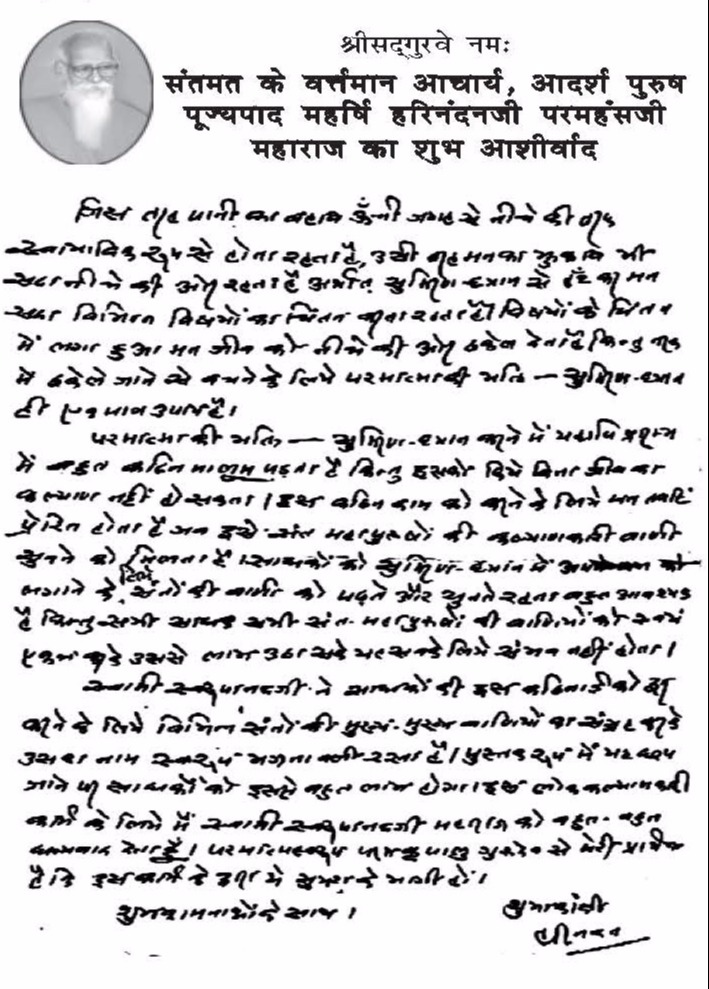 श्रीसद्‌गुरवे नमः
संतमत के वर्त्तमान आचार्य, आदर्श पुरुष
पूज्यपाद महर्षि हरिनंदनजी परमहंसजी
महाराज का शुभ आशीर्वाद
जिस तरह पानी का बहाव ऊँची जगह से नीचे की तरफ
स्वाभाविक रूप से होता रहता है, उसी तरह मन का झुकाव भी
सदा नीचे की ओर रहता है अर्थात् सुमिरण-ध्यान से हँट कर मन
सदा विभिन्न विषयों का चिंतन करता रहता है। विषयों के चिंतन
में लगा हुआ मन जीव को नीचे की ओर ढकेल देता है किन्तु नरक
में ढकेले जाने से बचने के लिये परमात्मा की भक्ति — सुमिरण-ध्यान
ही एकमात्र उपाय है।
परमात्मा की भक्ति — सुमिरण-ध्यान करने में यद्यपि प्रारम्भ
में बहुत कठिन मालूम पड़ता है किन्तु इसको किये बिना जीव का
कल्याण नहीं हो सकता। इस कठिन काम को करने के लिये मन तभी
प्रेरित होता है जब इसे संत महापुरुषों की कल्याणकारी वाणी
सुनने को मिलता है। साधकों को सुमिरण-ध्यान में
लगाने के लिये संतों की वाणी को पढ़ते और सुनते रहना बहुत आवश्यक
है किन्तु सभी साधक सभी संत-महापुरुषों की वाणियों को स्वयं
एकत्र करके उससे लाभ उठा सके यह सबके लिये संभव नहीं होता।
स्वामी स्वरूपानन्दजी ने साधकों की इस कठिनाई को दूर
करने के लिये विभिन्न संतों की मुख्य-मुख्य वाणियों का संग्रह करके
उसका नाम स्वरूप भजनावली रखा है। पुस्तक रूप में यह छप
जाने पर साधकों को इससे बहुत लाभ होगा। इस लोक कल्याणकारी
कार्य के लिये मैं स्वामी स्वरूपानन्दजी महाराज को बहुत-बहुत
धन्यवाद देता हूँ। परमात्मस्वरूप परम कृपालु गुरुदेव से मेरी प्रार्थना
है कि इस कार्य के द्वारा ये सुयश के भागी हों।
शुभकामनाओं के साथ।
शुभाकांक्षी
हरिनन्दन